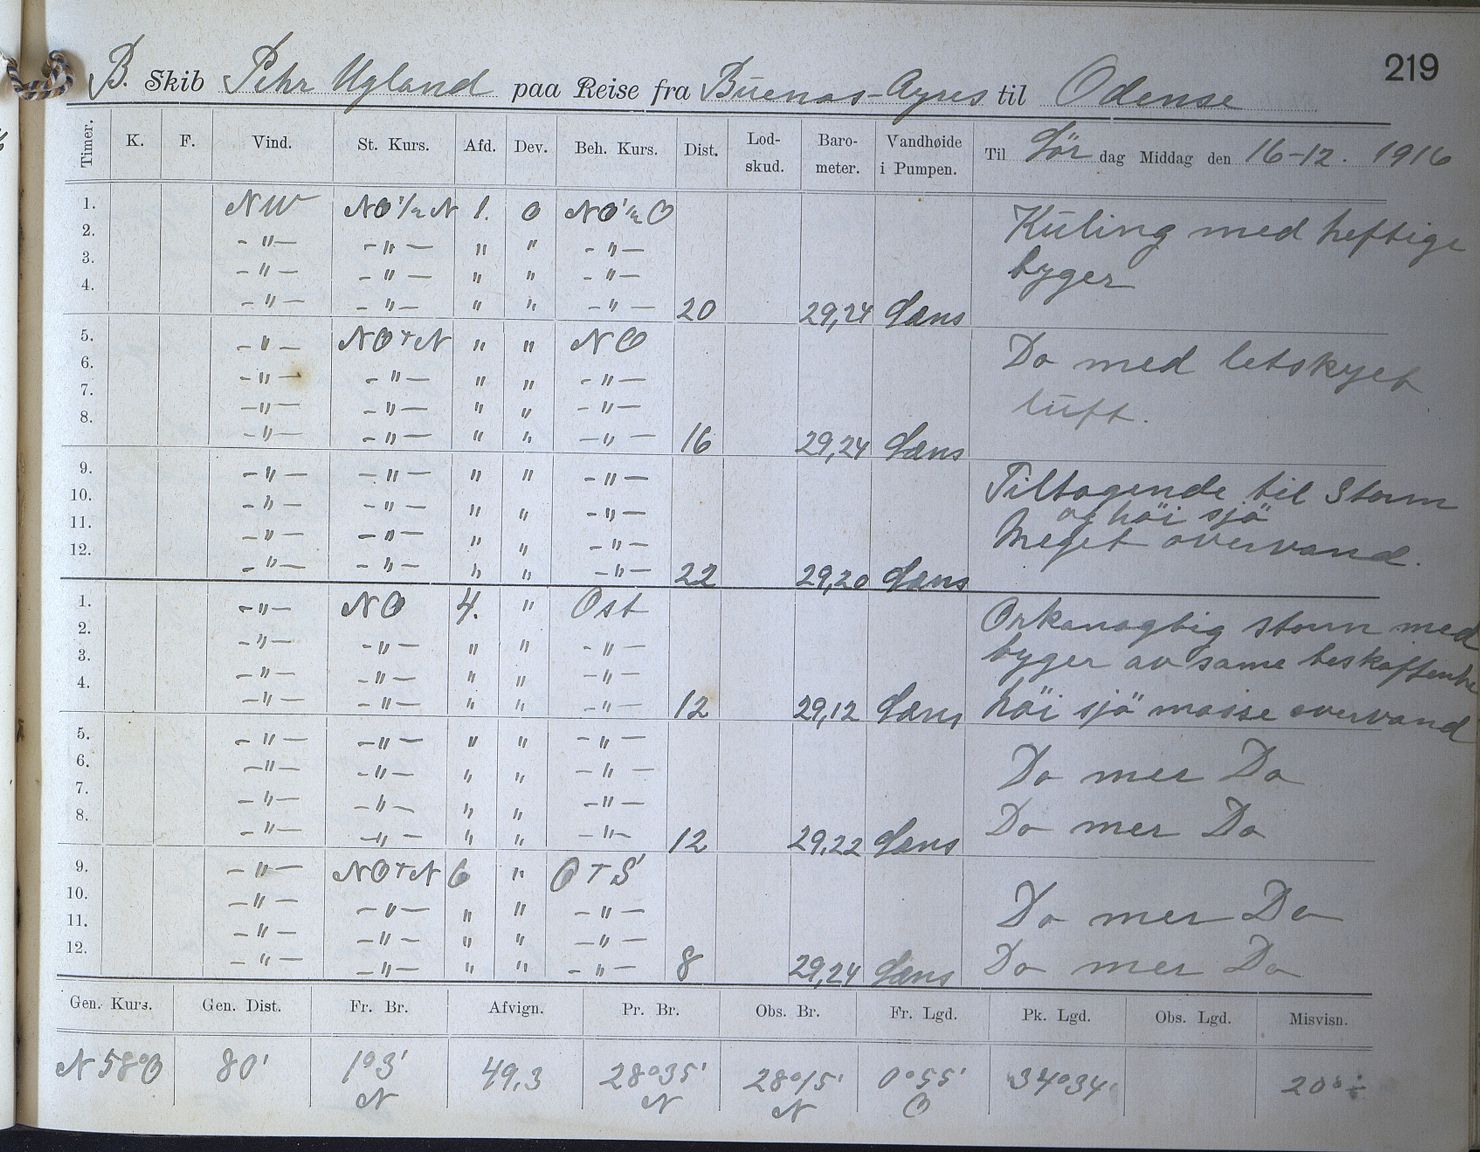 219
B. Skib Pehr Ugland paa Reise fra Buenos-Ayres til Odense
Timer. K. F. Vind. St. Kurs. Afd. Dev. Beh. Kurs. Dist. Lod-skud. Baro-meter. Vandhøide i Pumpen. Til Lör dag Middag den 16-12. 1916
1. NW NO 1/2 N 1. 0 NO 1/2 O Kuling med heftige
2. -"- -"- " " -"- byger
3. -"- -"- " " -"-
4. -"- -"- " " -"- 20 29,24 Læns
5. -"- NO t N " " NO Do med letskyet
6. -"- -"- " " -"- luft.
7. -"- -"- " " -"-
8. -"- -"- " " -"- 16 29,24 Læns
9. -"- -"- " " -"- Tiltagende til Storm
10. -"- -"- " " -"- og höi sjö
11. -"- -"- " " -"- Meget overvand.
12. -"- -"- " " -"- 22 29,20 Læns
1. -"- NO 4. " Ost Orkanagtig storm med
2. -"- -"- " " -"- byger av same
3. -"- -"- " " -"-
4. -"- -"- " " -"- 12 29,12 Læns höi sjö masse overvand
5. -"- -"- " " -"- Do mer Do
6. -"- -"- " " -"-
7. -"- -"- " " -"- Do mer Do
8. -"- -"- " " -"- 12 29,22 Læns
9. -"- NO t N 6 " O t S
10. -"- -"- " " -"- Do mer Do
11. -"- -"- " " -"-
12. -"- -"- " " -"- 8 29,24 Læns Do mer Do
Gen. Kurs. Gen. Dist. Fr. Br. Afvign. Pr. Br. Obs. Br. Fr. Lgd. Pk. Lgd. Obs. Lgd. Misvisn.
N 58° O 80' 1°3' N 49,3 28°35' N 28°15' N 0°55' O 34°34' 20°